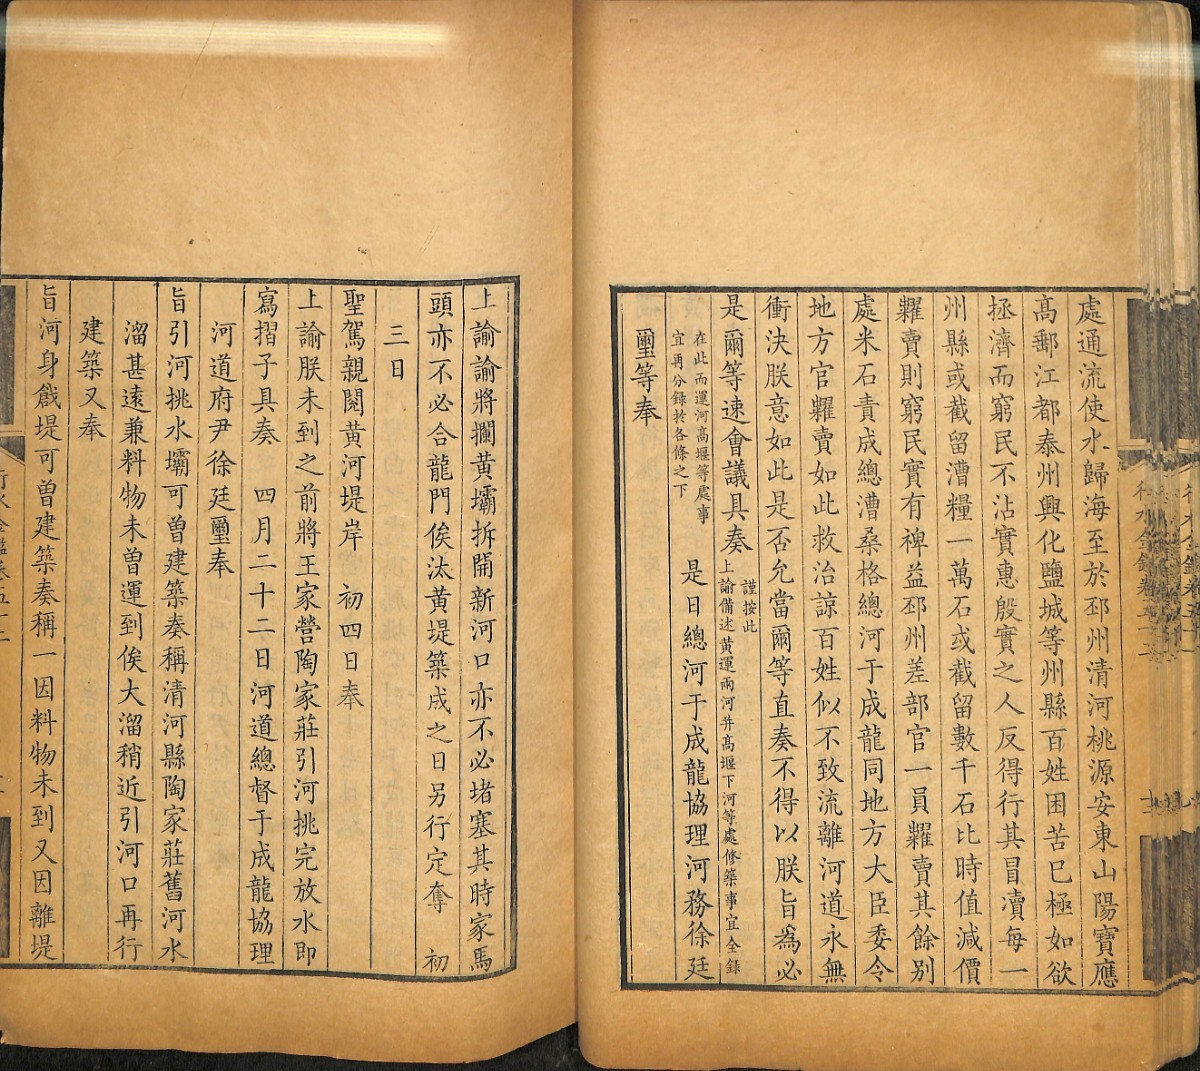 處通流使水歸海至於邳州清河桃源安東山陽寶應
高郵江都泰州興化鹽城等州縣百姓困苦巳極如欲
拯濟而窮民不沾實惠殷實之人反得行其冒瀆每一
州縣或截留漕糧一萬石或截留數千石比時值減價
糶賣則窮民實有裨益邳州差部官一員糶賣其餘別
處米石責成總漕桑格總河于成龍同地方大臣委令
地方官糶賣如此救治諒百姓似不致流離河道永無
衝決朕意如此是否允當爾等直奏不得以朕旨爲必
是爾等速會議具奏
謹按此
上諭備述黃運兩河并高堰下河等處修築事宜全錄
在此而運河高堰等處事
宜再分錄於各條之下
是日總河于成龍協理河務徐廷
璽等奉
上諭諭將攔黃壩拆開新河口亦不必堵塞其時家馬
頭亦不必合龍門俟汰黃堤築成之日另行定奪 初
三日
聖駕親閱黃河堤岸 初四日奉
上諭朕未到之前將王家營陶家莊引河挑完放水即
寫摺子具奏 四月二十二日河道總督于成龍協理
河道府尹徐廷璽奉
旨引河挑水壩可曾建築奏稱清河縣陶家莊舊河水
溜甚遠兼料物未曾運到俟大溜稍近引河口再行
建築又奉
旨河身戧堤可曾建築奏稱一因料物未到又因離堤